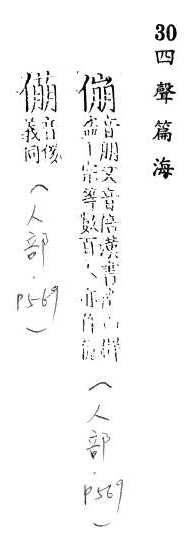 30 四聲篇海
傰 音朋又音倍漢書南山群
盜傰宗等數百人亦作
(人部.P569)
音
義同
(人部.P569)